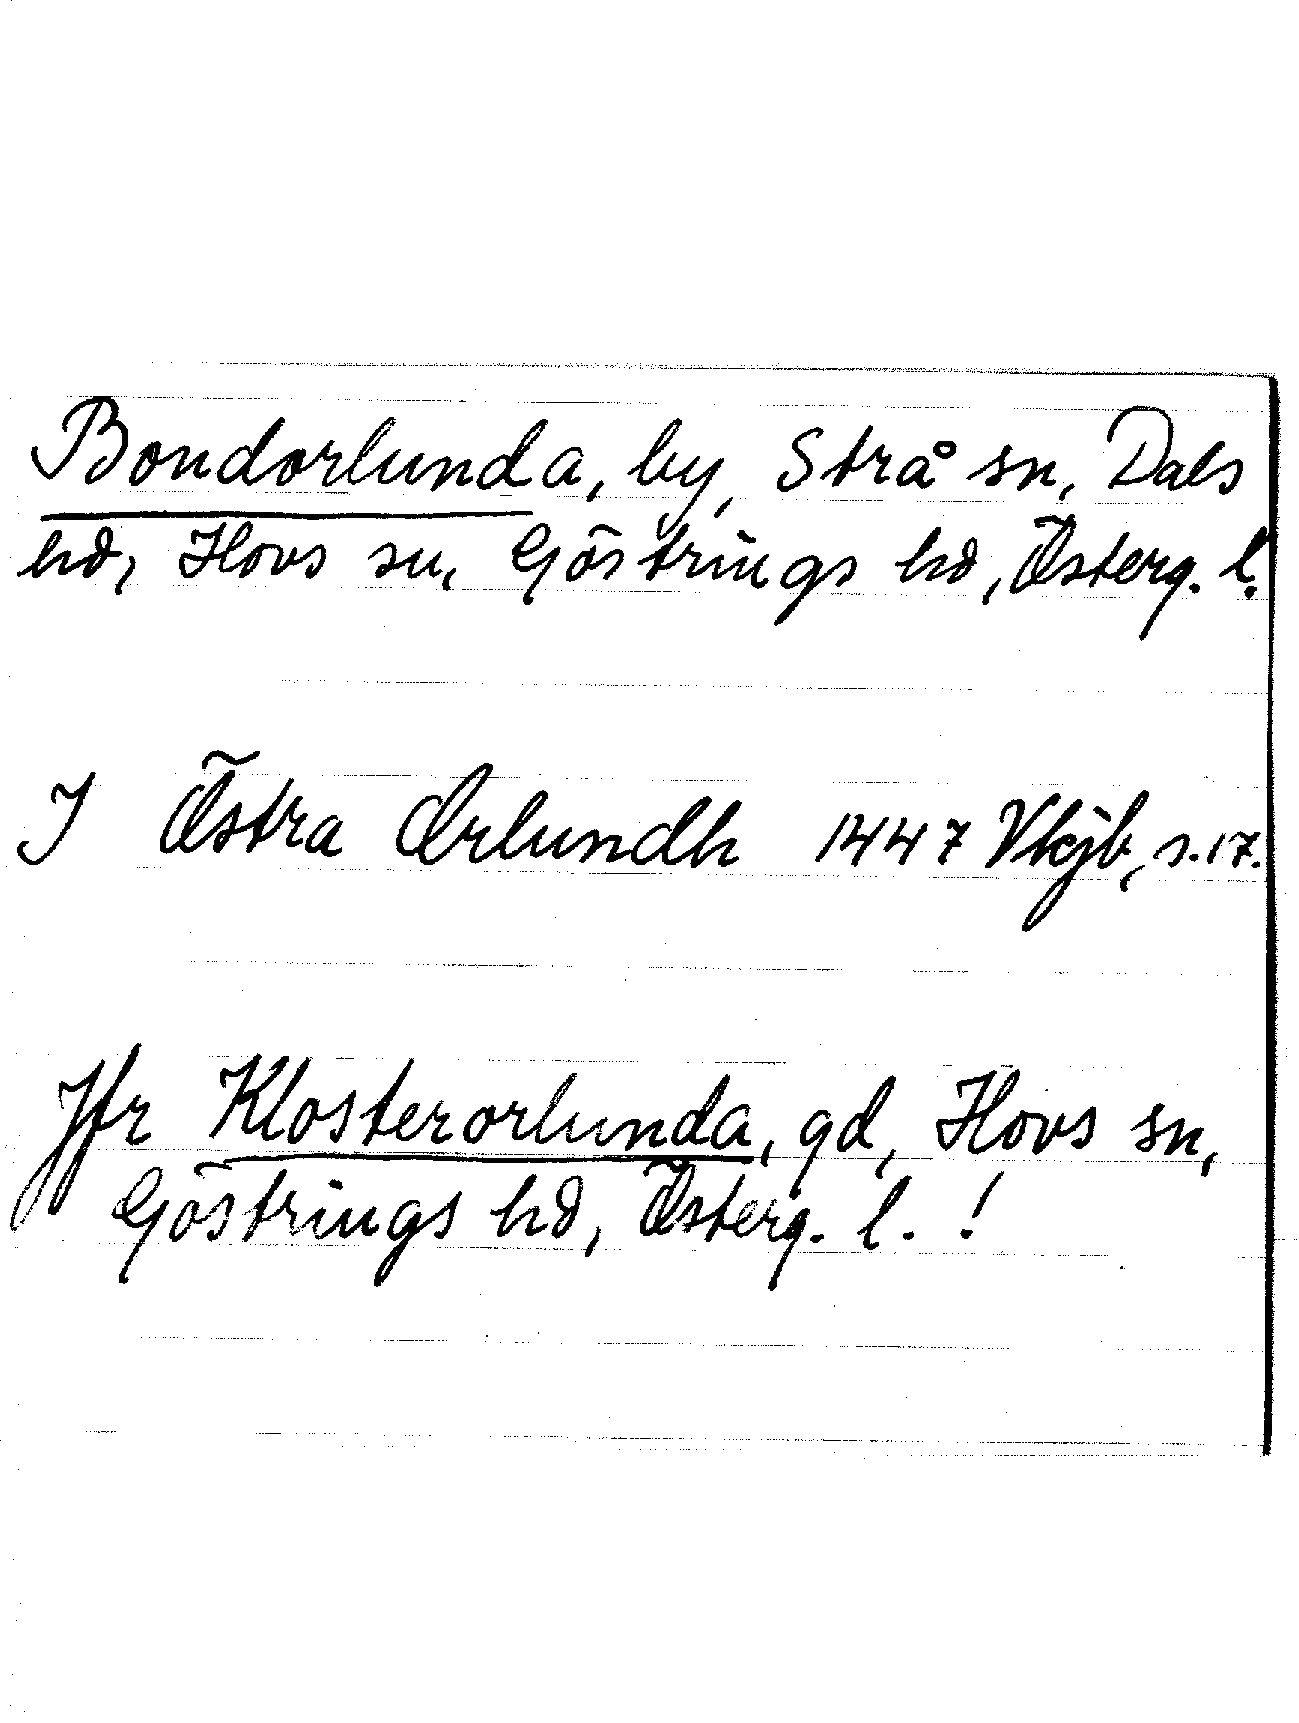 Bondorlunda, by, Strå sn, Dals
hd, Hovs sn, Göstrings hd, Österg. l.
I Östra Orlundh 1447 Vkjb, s. 17.
Jfr Klosterorlunda, gd, Hovs sn,
Göstrings hd, Österg. l. !